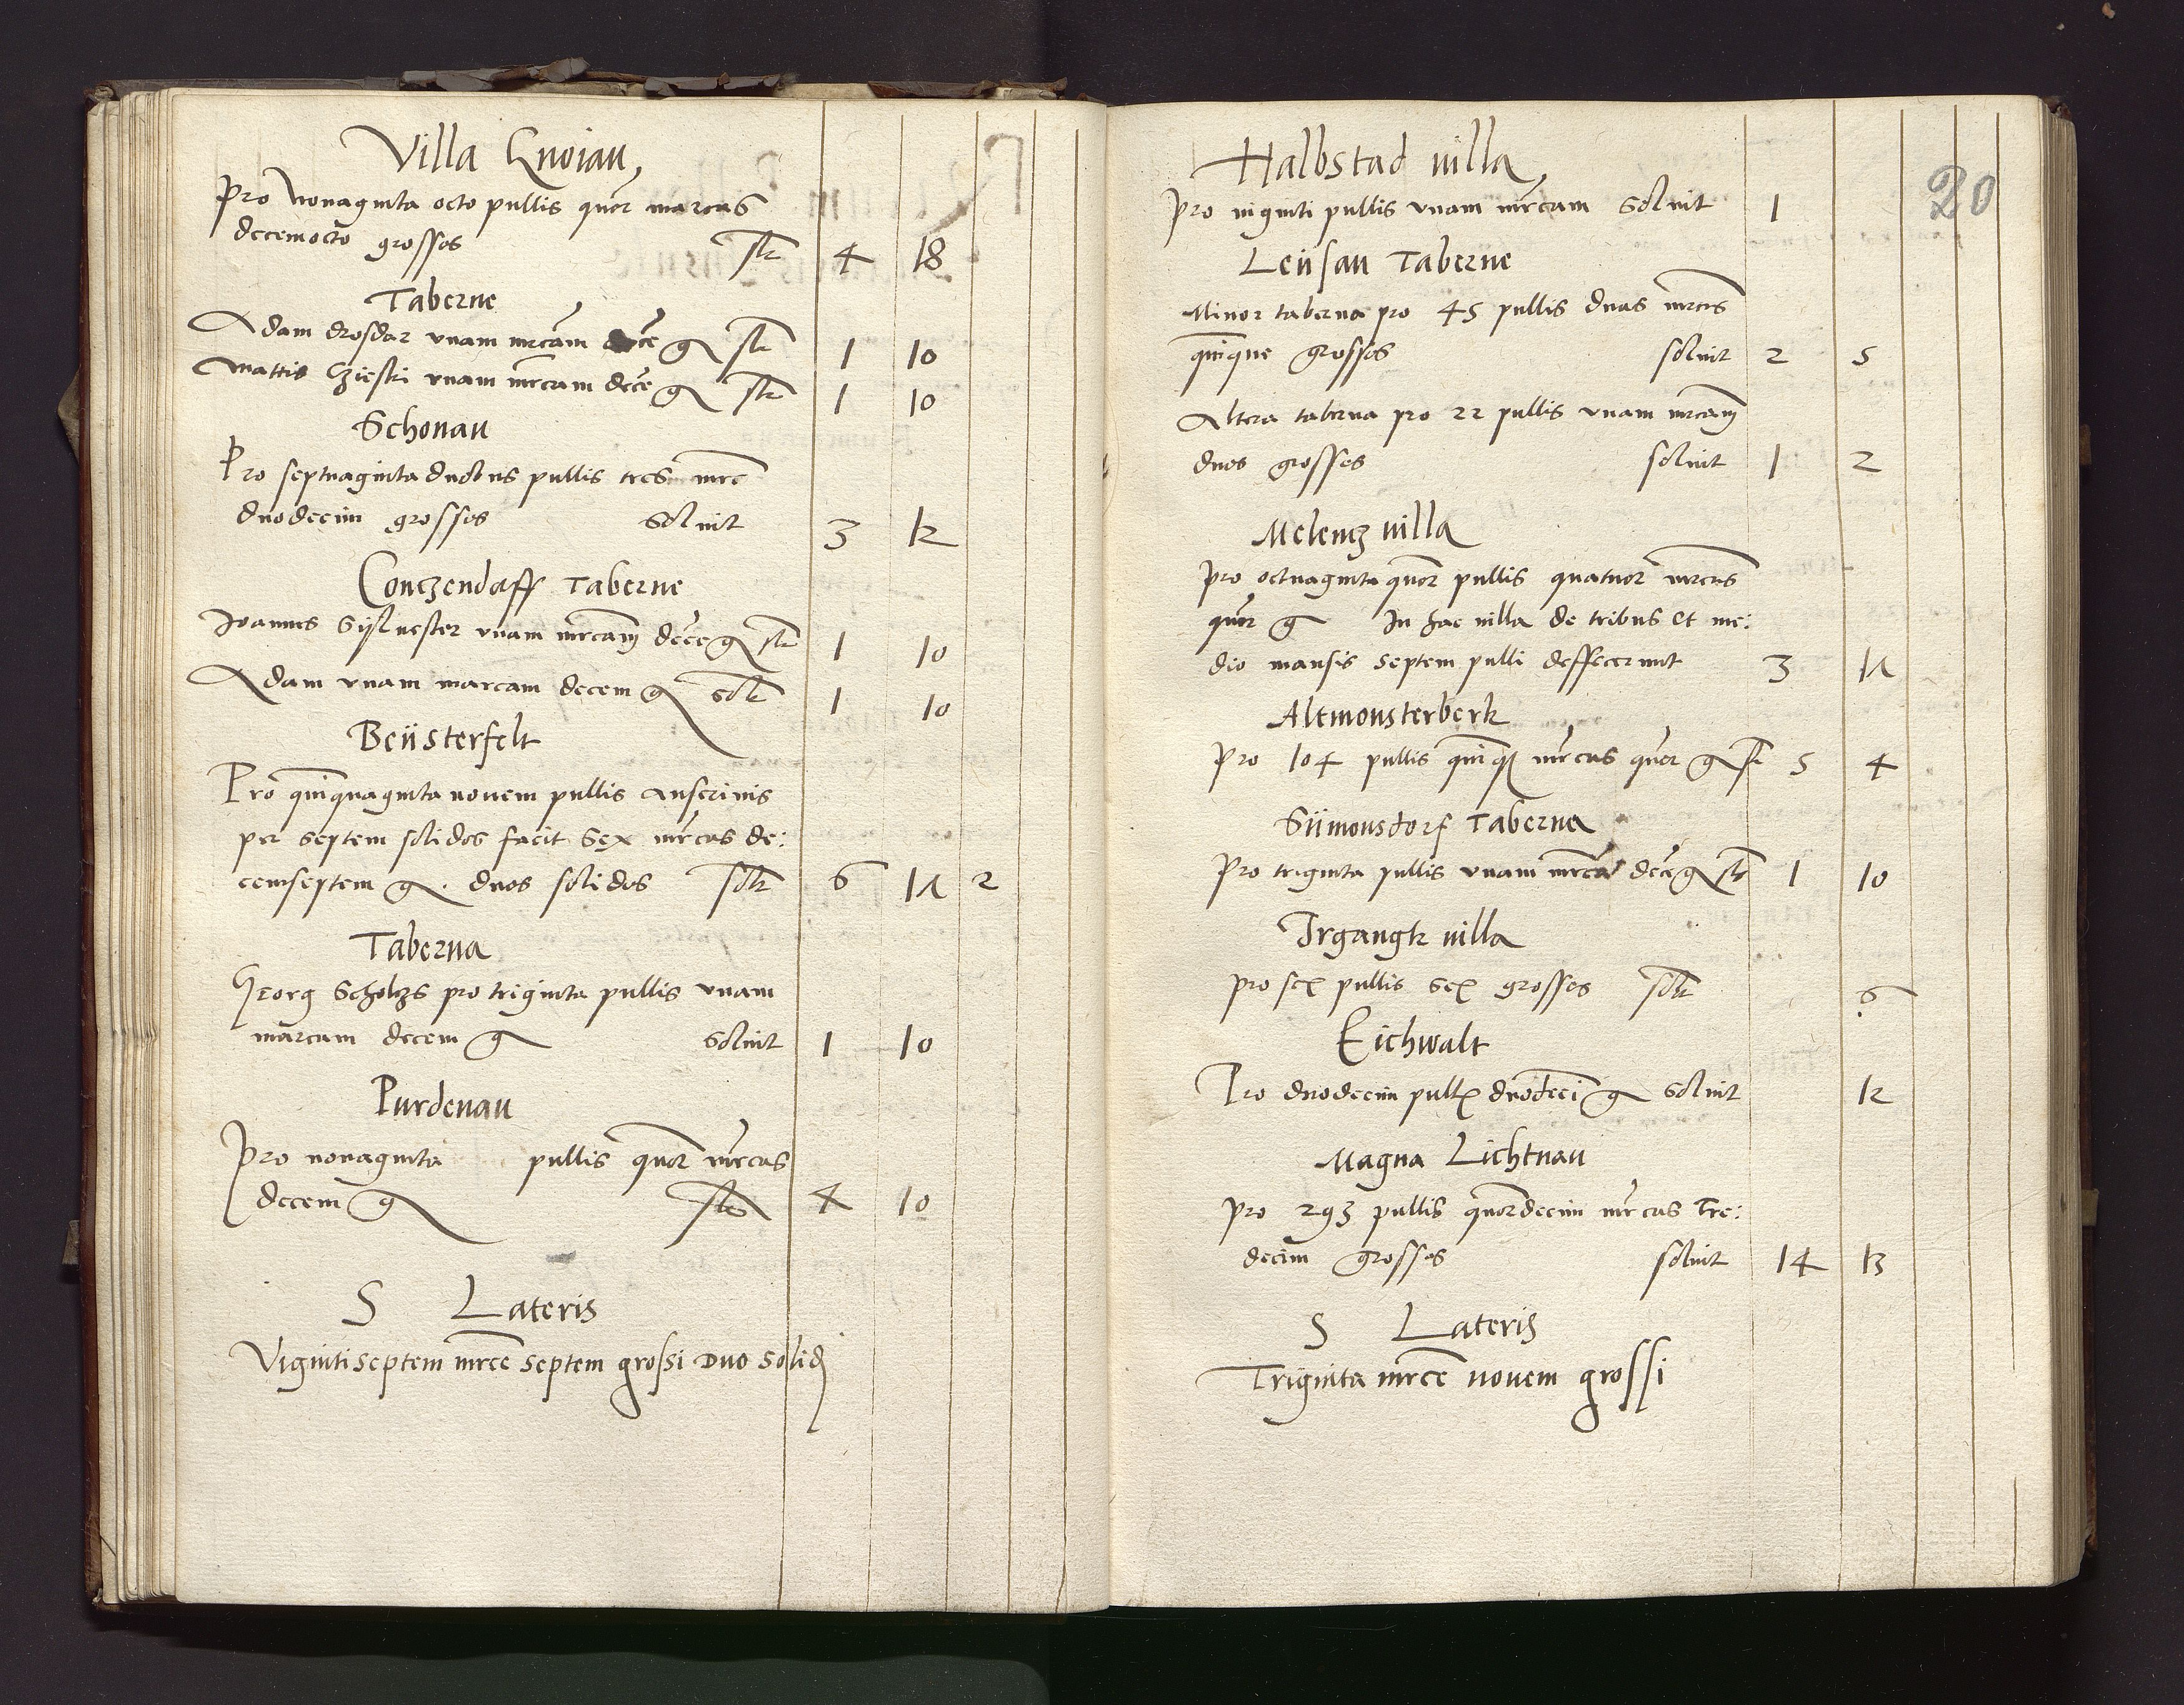 Villa Knoiau
Pro Nonaginta octo pullis quor marcas
decemocto grossos slt 4 18
Taberne
Adam drosdar unam mrcam dece g slt 1 10
Mattis Czieski unam mrcam dece g slt 1 10
Schonau
Pro septuaginta duobus pullis tres mrc
duodecim grossos Soluit 3 12
Conczendorff Taberne
Joannes Syluester unam mrcam dece g slt 1 10
Adam unam marcam decem g solt 1 10
Beüsterfelt
Pro quinquaginta novem pullis anserinis
per septem solidos facit Sex mrcas de:
cemseptem g. duos solidos solt 6 17 2
Taberna
Georg Scholtzs pro triginta pullis unam
marcam decem g Soluit 1 10
Purdenau
Pro nonaginta pullis quor mrcas
decem g slt 4 10
S Lateris
Vigintiseptem mrce septem grossi Duo solidj
20
Halbstad villa
Pro uiginti pullis unam mrcam Soluit 1
Leüsau Taberne
Minor taberna pro 45 pullis duas mrcas
quinque grossos soluit 2 5
Altera taberna pro 22 pullis unam mrcam
duos grossos soluit 1 2
Melencz villa
Pro octuaginta quor pullis quatuor mrcas
quor g In hac uilla de tribus et me:
dio mansis septem pulli deffecerunt 3 17
Altmonsterberk
Pro 104 pullis quinq mrcas quor g st 5 4
Siimonsdorf Taberna
Pro triginta pullis unam mrca dece g slt 1 10
Irgangk villa
Pro sex pullis sex grossos solt 6
Eichwalt
Pro duodecim pull duodeci g Soluit 12
Magna Lichtnau
Pro 293 pullis quordecim mrcas Tre:
decim grossos soluit 14 13
S Lateris
Triginta mrce novem grossi